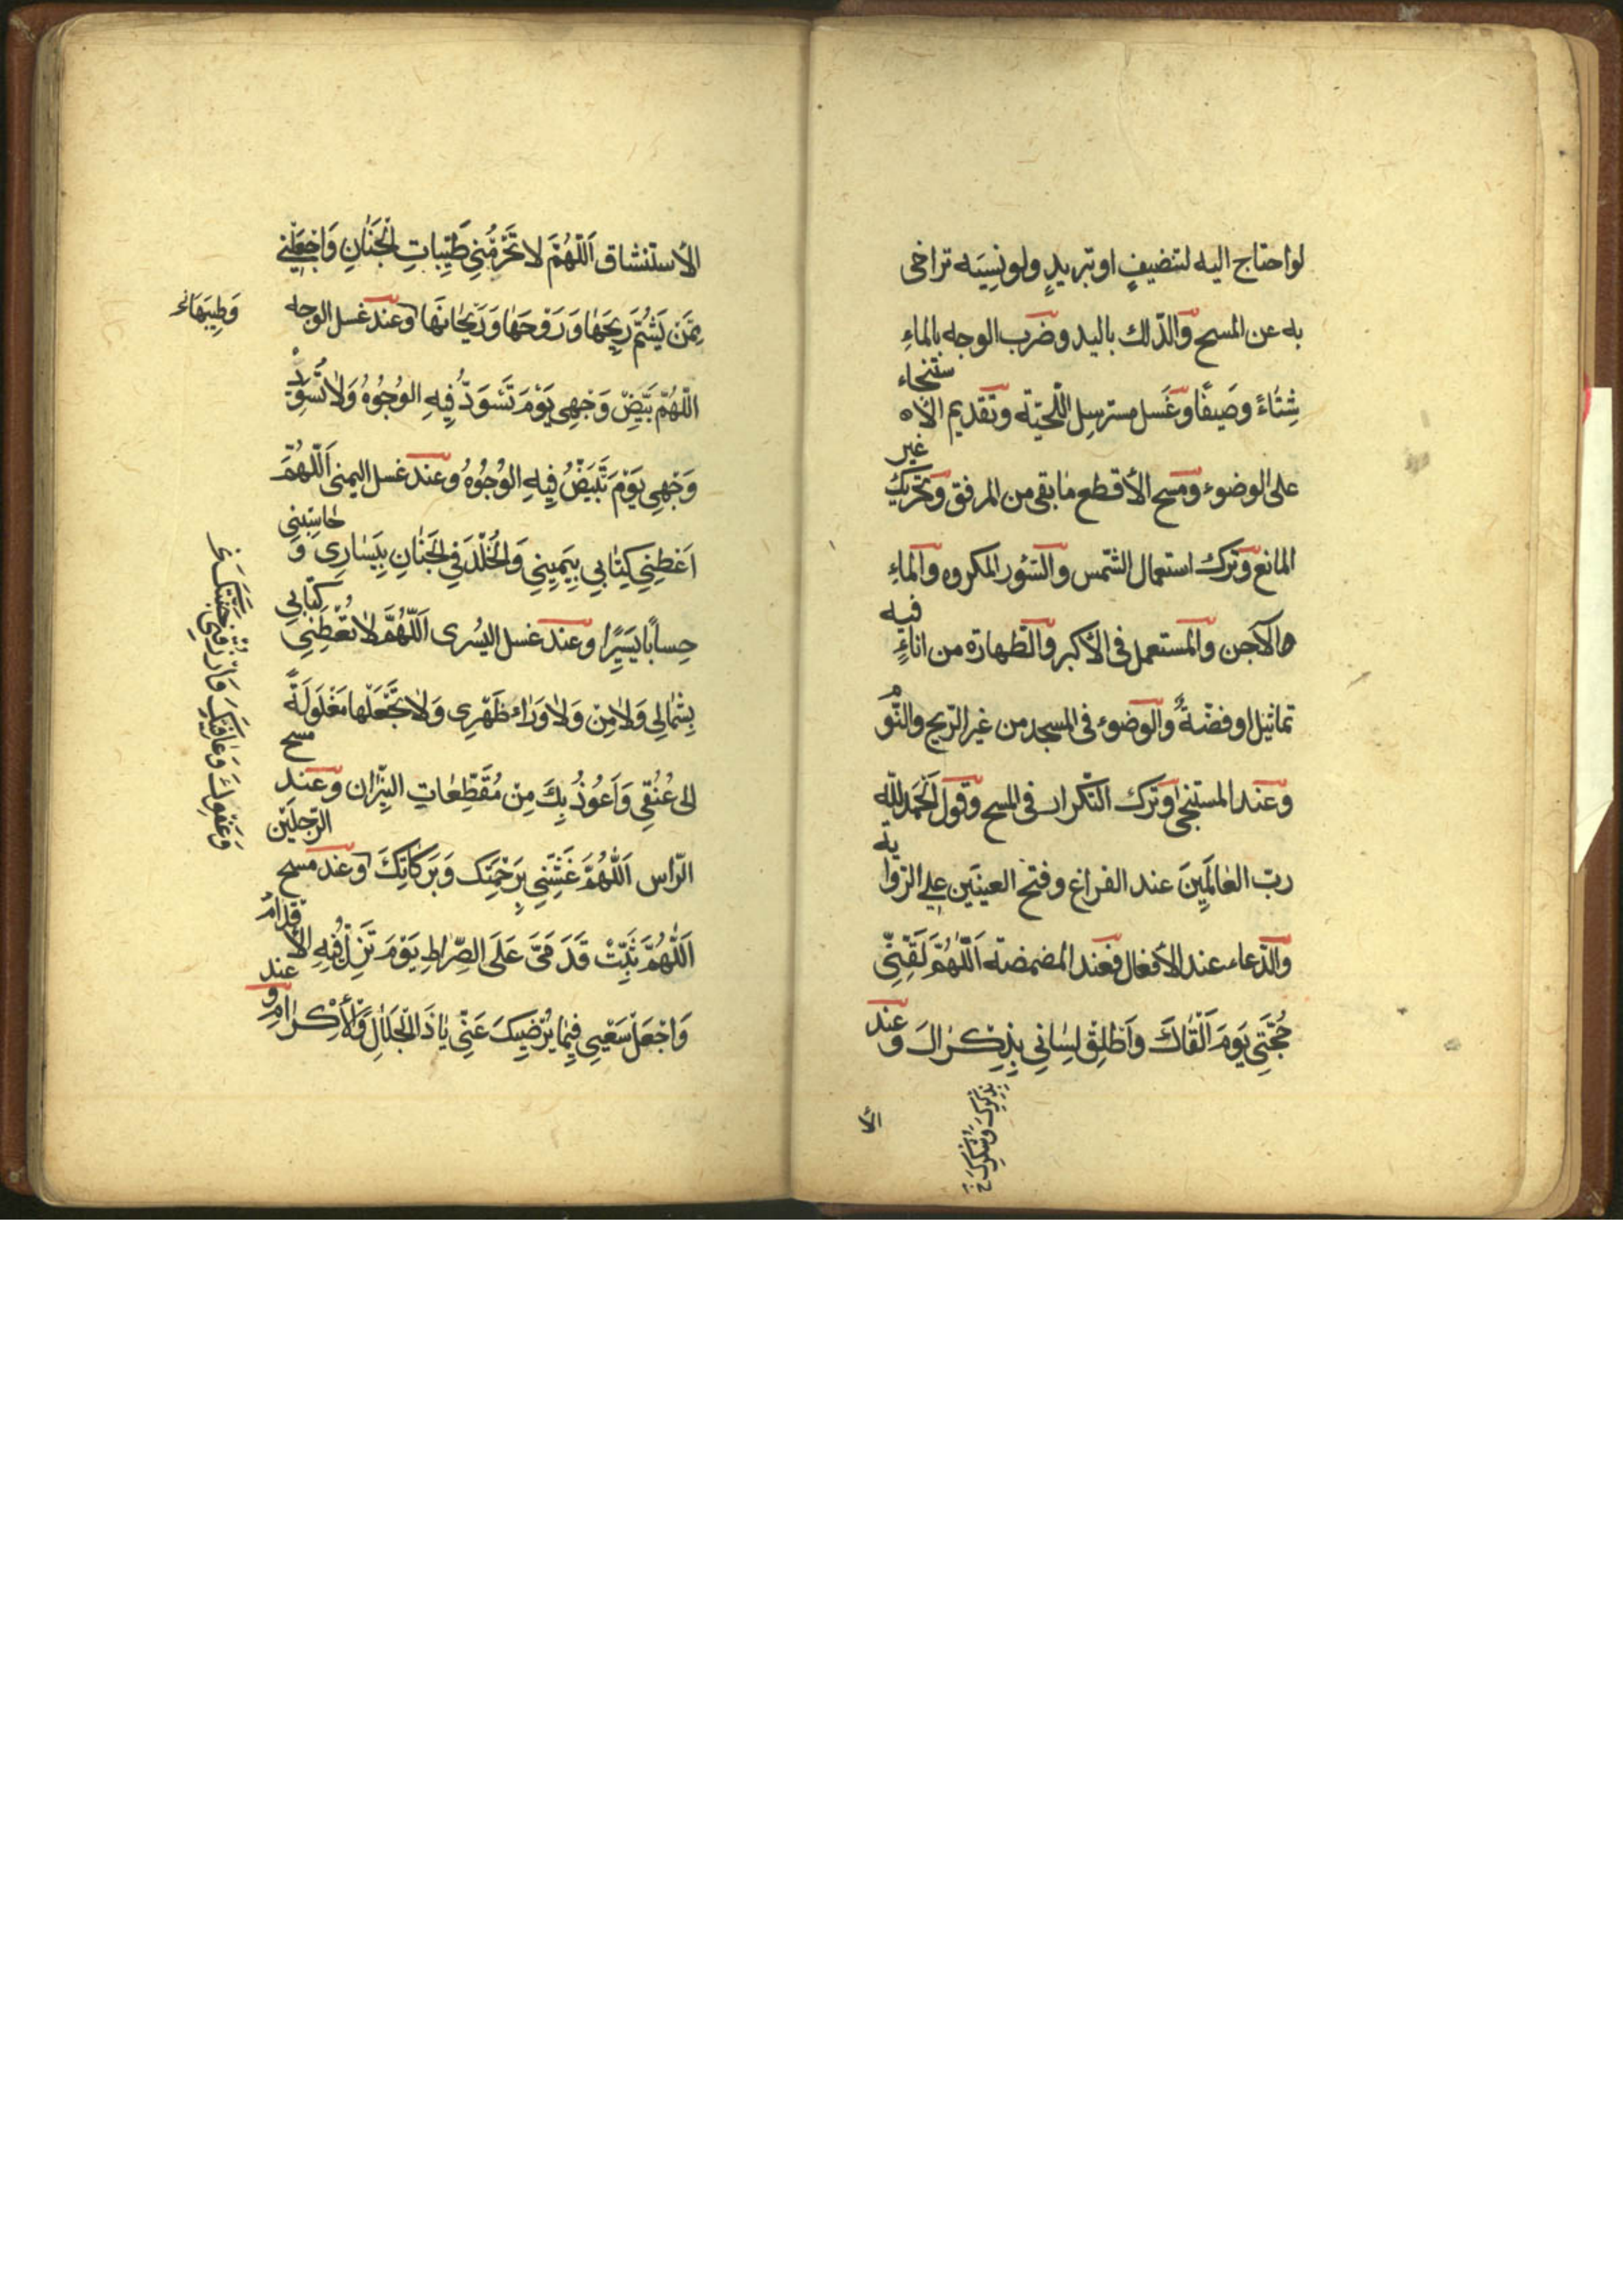 لو احتاج اليه لتنضيفٍ او تبريدٍ ولو نِسيَه تراخى
به عن المسح والدّلك باليد وضَرب الوجه بالماءِ
شِتٰاءً وصَيفًا وغَسل مسترسِل اللّحيَة وتقديم الأستنجاء
على الوضوء ومَسح الأقطع مٰا بقى من المرفق وتحريك غير
المانع وترك استعمال الشّمس والسّؤر المكروه والماءِ
الآجن والمستعمل فى الأكبر والطّهارة من اناءٍ فيه
تماثيل او فضّة والوضوء فى المسجد من غير الرّيح والنّو
وعند المستنجىٰ وترك التّكرار فى المسح وقول اَلحَمدُ لِلّٰهِ
ربّ العٰالَمِينَ عند الفراغ وفتح العينَين على الرّواية
والدّعاء عند الأفعال فعند المضمضة اَللّٰهُمَّ لَقِّنّي
حُجَّتِي يَومَ اَلْقٰاكَ وَاَطْلِقْ لِسٰانِي بِذِكْرٰاكَ وعند
بِذِكْرِكَ وَشُكْرِكَ خ
الأستنشاق اَللّٰهُمَّ لا تَحْرِمْنِي طَيِّبٰاتِ الْجَنٰانِ وَاجْعَلْنِي
مِمَّن يَشُمُّ رِيحَهٰا وَرَوْحَهٰا وَرَيْحٰانَهٰا وعند غسل الوجه
وَطِيبَهٰا خ
اللّٰهُمّ بَيِّضْ وَجْهِي يَوْمَ تَسْوَدُّ فِيهِ الوُجُوهُ وَلاٰ تُسَوِّدْ
وَجْهِي يَوْمَ تَبْيَضُّ فِيهِ الوُجُوهُ وعند غسل اليمنى اَللّٰهُمَّ
اَعْطِنِي كِتٰابِي بِيَمِينِي وَالخُلْدَ فِي الجَنٰانِ بِيَسٰارِي وَحٰاسِبْنِي
حِسٰابًا يَسِيرًا وعند غسل اليسُرى اَللّٰهُمَّ لاٰ تُعْطِنِي كتٰابِي
بِشِمٰالِي وَلاٰ مِنْ وَلاٰ وَرٰاءِ ظَهْرِي وَلاٰ تَجْعَلْهٰا مَغْلُولَةً
الى عُنُقِي وَاَعُوذُ بِكَ مِنْ مُقَطِّعٰاتِ النِّيرٰان وعند مسح
الرّاس اَللّٰهُمَّ غَشِّنِي بِرَحْمَتِكَ وَبَرَكٰاتِكَ وعند مسح الرّجلَيْن
اَللّٰهُمَّ ثَبِّتْ قَدَمَيَّ عَلَى الصِّرٰاطِ يَوْمَ تَزِلُّ فِيهِ الأَقدٰامُ
وَاجْعَلْ سَعْيِي فِيمٰا يُرْضِيكَ عَنِّي يٰا ذَا الْجَلاٰلِ وَالأِكْرٰامِ وعند